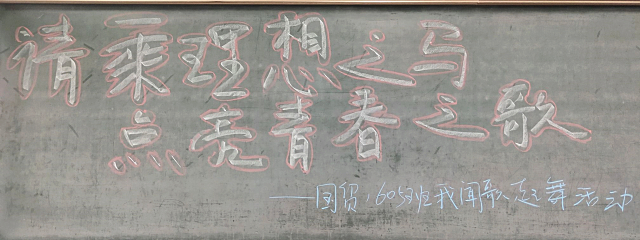 请乘理想之马
点亮青春之歌
——国贸1605班我闻歌起舞活动